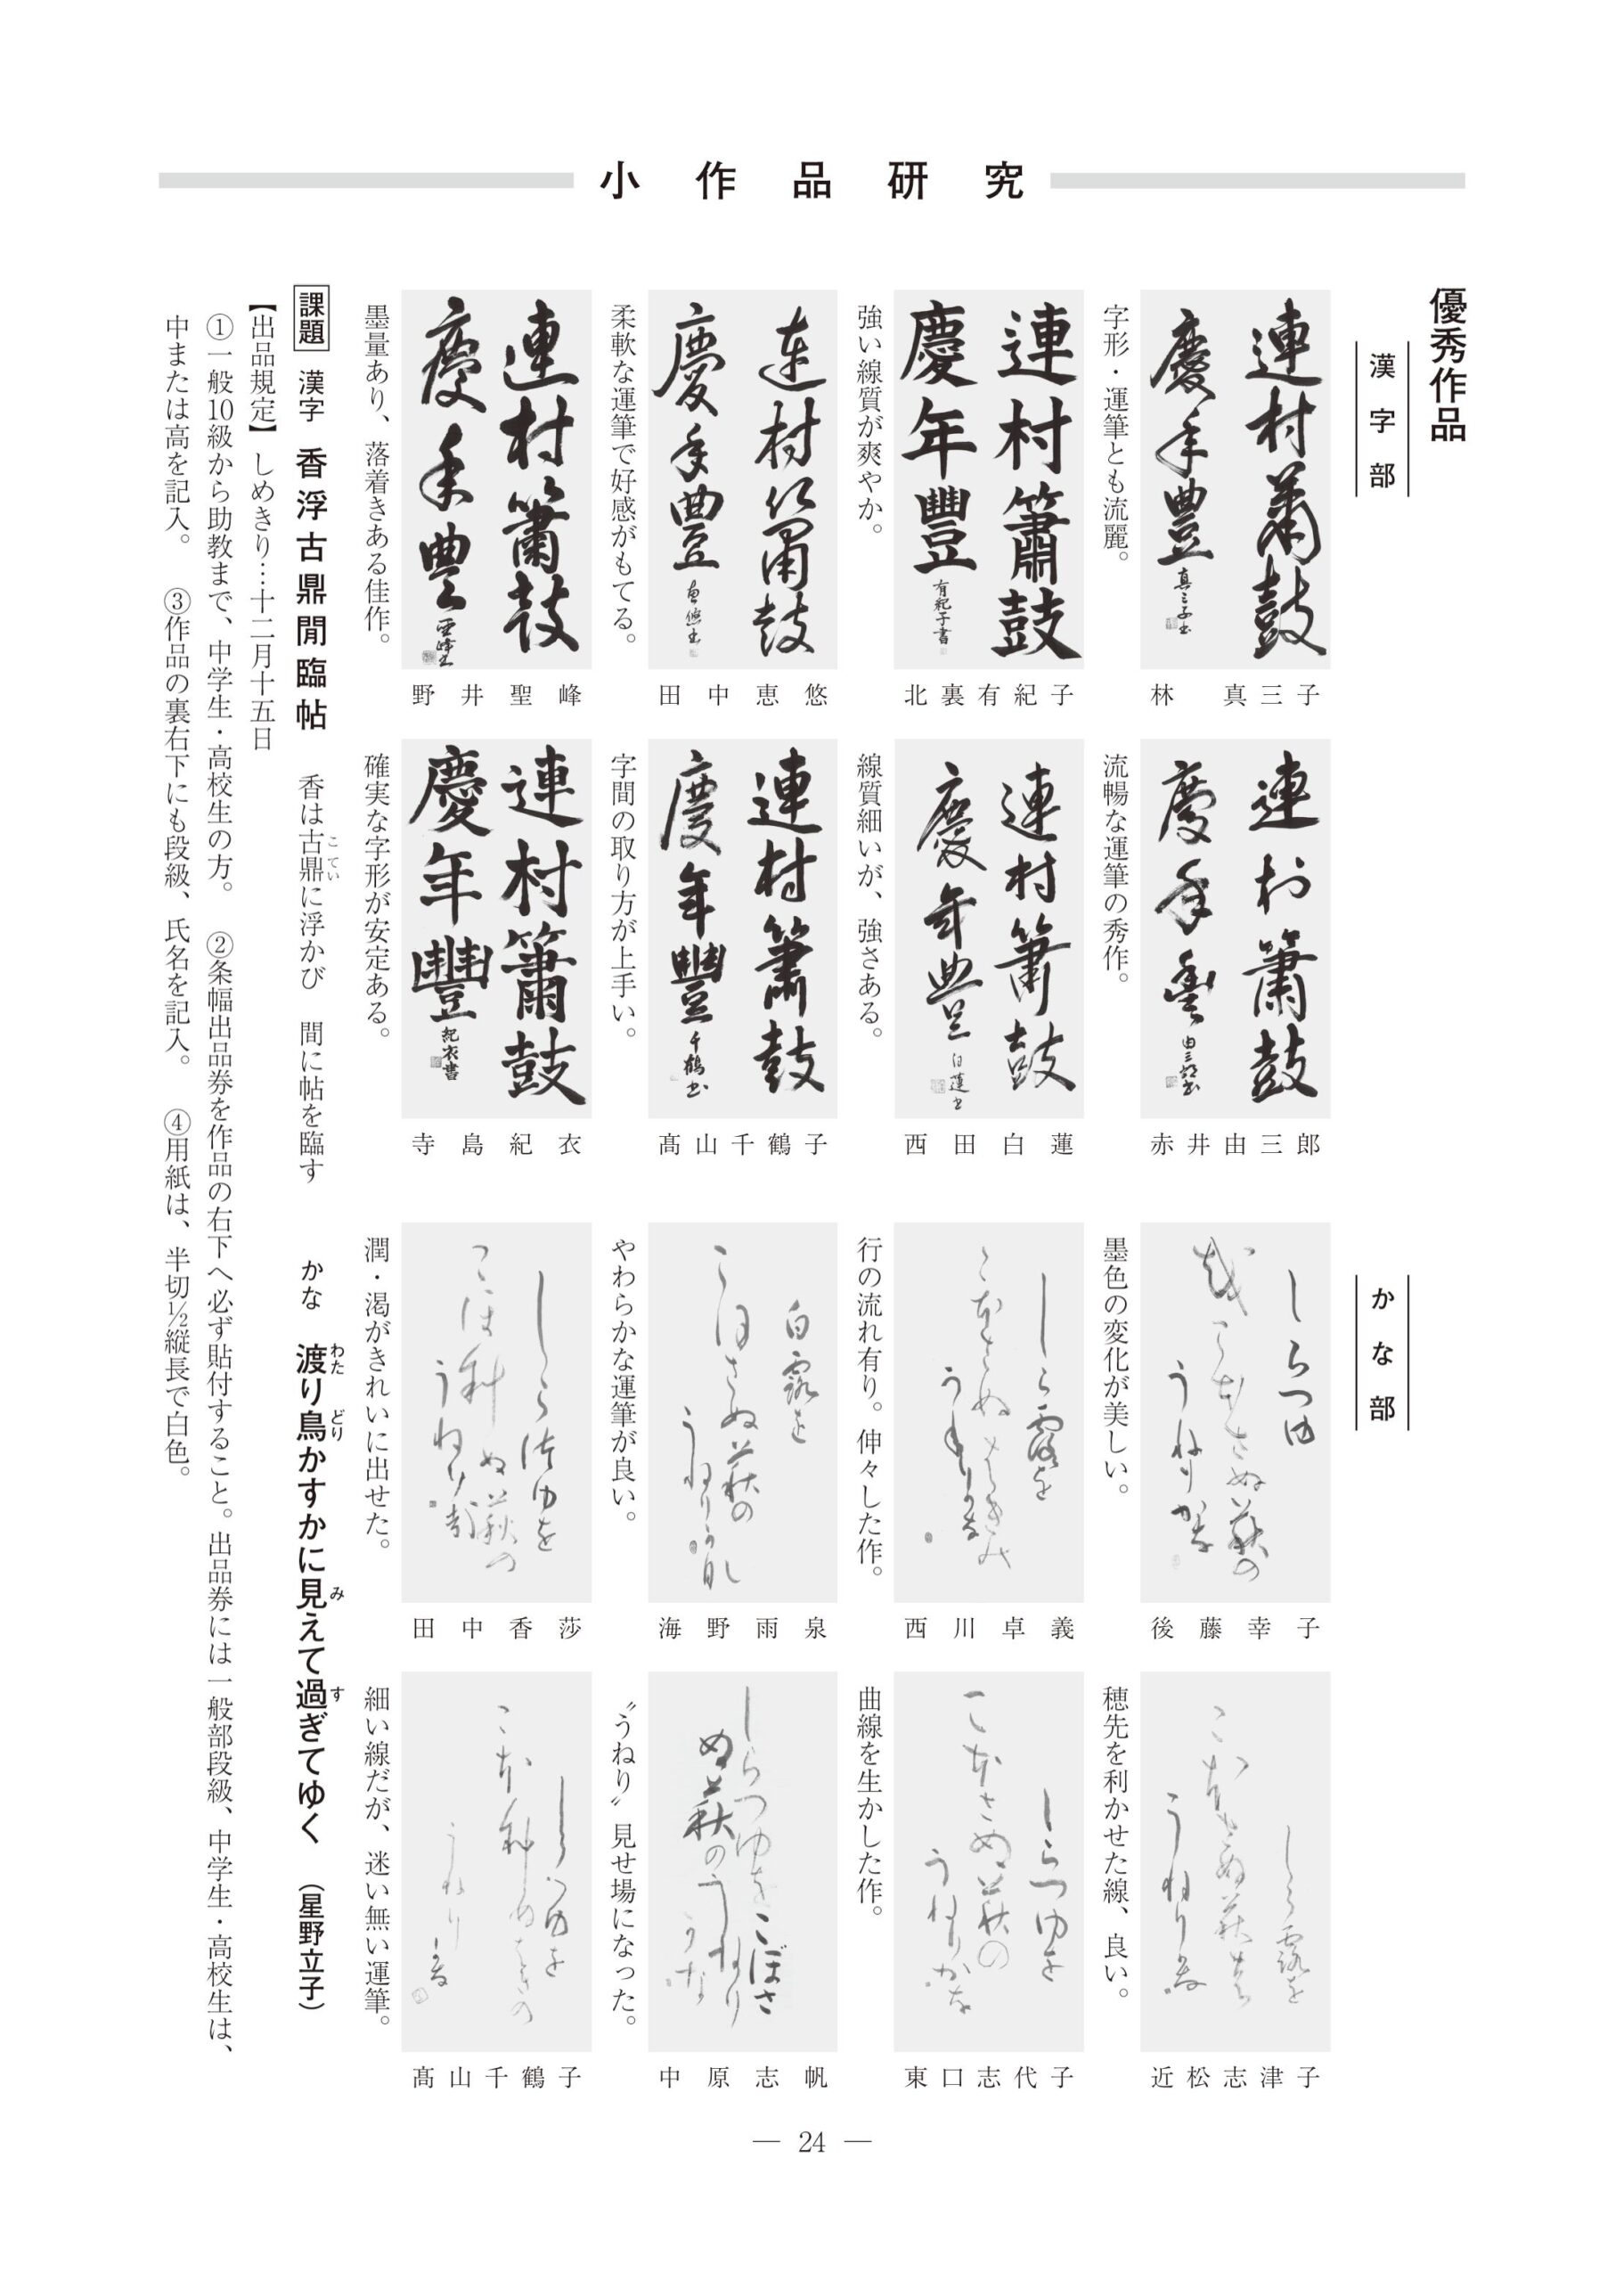 小作品研究
優秀作品
漢字部
連村簫鼓
慶年豊
真三子書
林 真三子
字形・運筆とも流麗。
連村簫鼓
慶年豊
有紀子書
北裏有紀子
強い線質が爽やか。
連村簫鼓
慶年豊
恵悠書
田中恵悠
柔軟な運筆で好感がもてる。
連村簫鼓
慶年豊
聖峰書
野井聖峰
墨量あり、落着きある佳作。
連村簫鼓
慶年豊
由三郎書
赤井由三郎
流暢な運筆の秀作。
連村簫鼓
慶年豊
白蓮書
西田白蓮
線質細いが、強さある。
連村簫鼓
慶年豐
千鶴書
髙山千鶴子
字間の取り方が上手い。
連村簫鼓
慶年豐
紀衣書
寺島紀衣
確実な字形が安定ある。
かな部
しらつゆ
後藤幸子
墨色の変化が美しい。
しら露を
西川卓義
行の流れ有り。伸々した作。
白露を
こほさぬ萩の
海野雨泉
やわらかな運筆が良い。
田中香莎
潤・渇がきれいに出せた。
しら露を
近松志津子
穂先を利かせた線、良い。
しらつゆを
こぼさぬ萩の
うねりかな
東口志代子
曲線を生かした作。
しらつゆをこぼさ
ぬ萩のうねり
かな
中原志帆
〝うねり〟見せ場になった。
髙山千鶴子
細い線だが、迷い無い運筆。
課題 漢字 香浮古鼎閒臨帖 香は古鼎に浮かび 間に帖を臨す かな 渡り鳥かすかに見えて過ぎてゆく (星野立子)
こてい
わた どり み す
【出品規定】しめきり…十二月十五日
①一般10級から助教まで、中学生・高校生の方。 ②条幅出品券を作品の右下へ必ず貼付すること。出品券には一般部段級、中学生・高校生は、
中または高を記入。 ③作品の裏右下にも段級、氏名を記入。 ④用紙は、半切½縦長で白色。
— 24 —